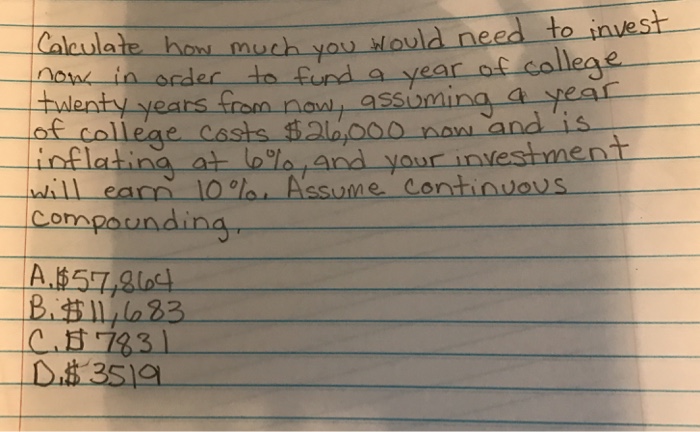 Calculate how much you would need to invest
now in order to fund a year of college
twenty years from now, assuming a year
of college costs $26,000 now and is
inflating at 6%, and your investment
will earn 10%. Assume continuous
compounding.
A. $57,864
B. $11,683
C. $7831
D. $3519